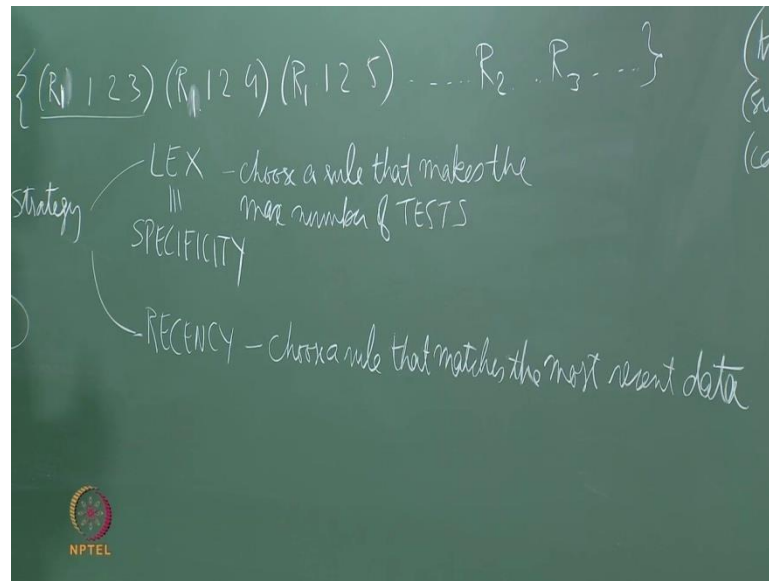 {(R1 1 2 3) (R1 1 2 4) (R1 1 2 5) ..... R2 .. R3 ...}
Strategy
LEX - choose a rule that makes the
max number of TESTS
|||
SPECIFICITY
RECENCY - choose a rule that matches the most recent data
NPTEL